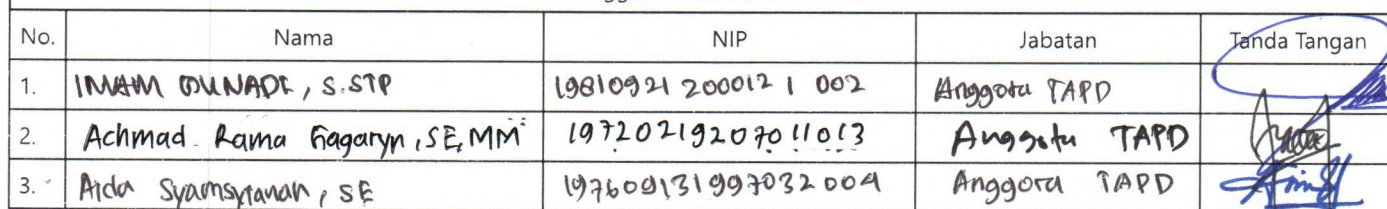 No. Nama NIP Jabatan Tanda Tangan
1. IMAM GUNADI, S.STP 19810921 200012 1 002 Anggota TAPD
2. Achmad Rama Gagaryn, SE, MM 19720219207011013 Anggota TAPD
3. Aida Syamsytanan, SE 197609131997032004 Anggota TAPD